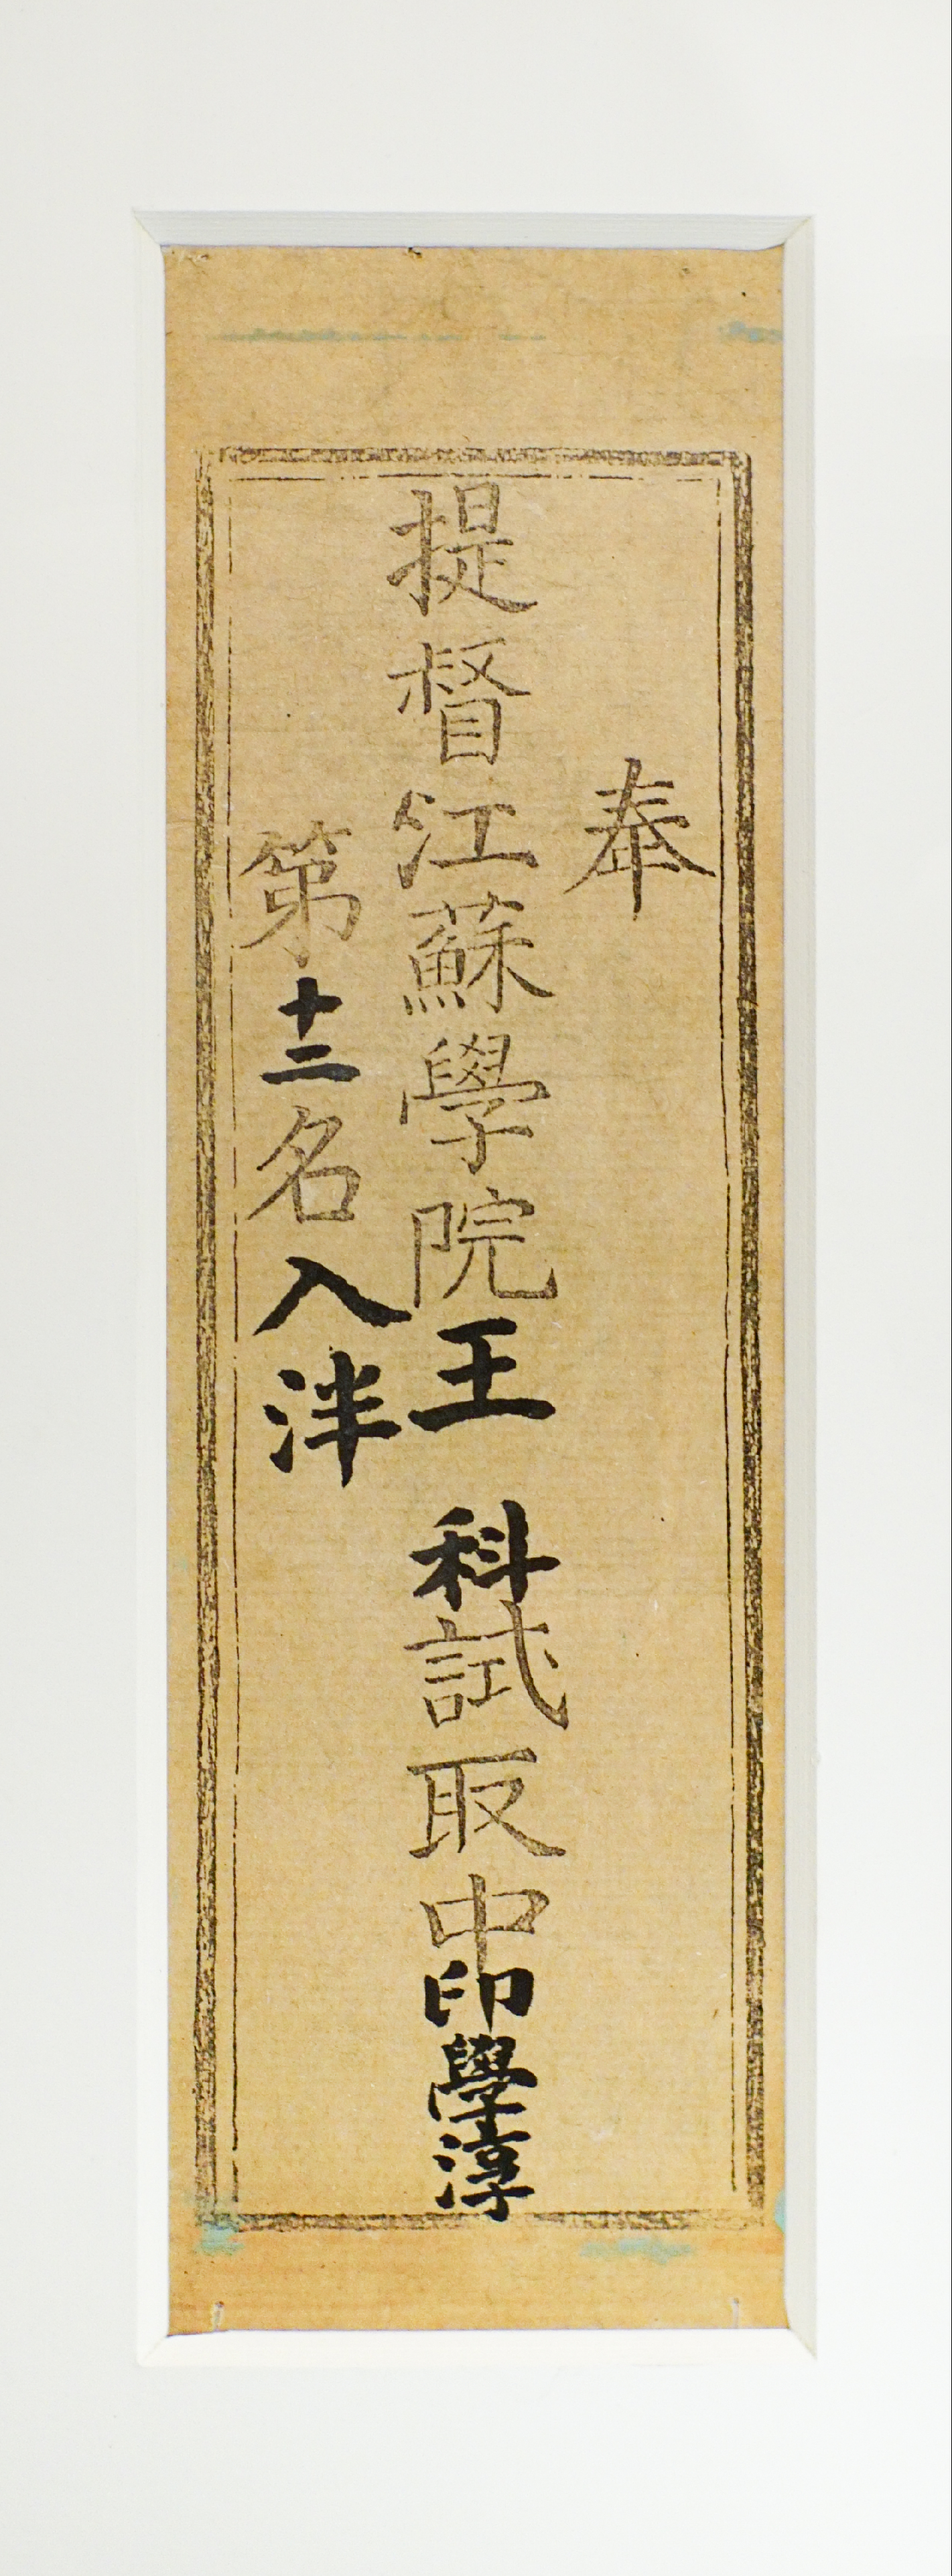 奉
提督江蘇學院王 科試取中印學淳
第十二名入泮